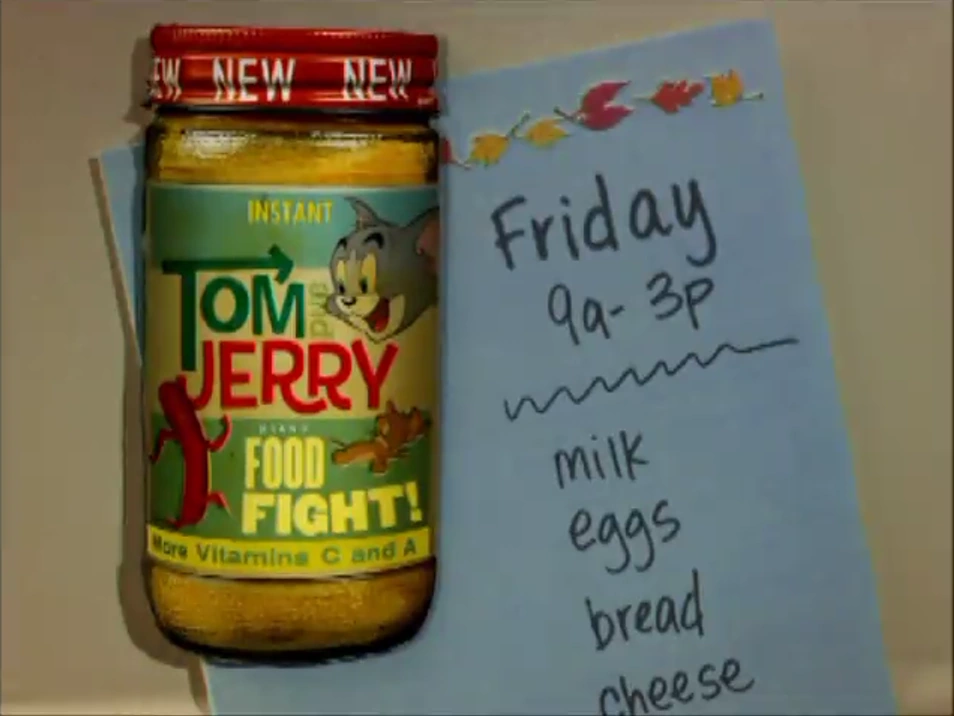 EW NEW NEW
INSTANT
TOM
and
JERRY
BRAND
FOOD
FIGHT!
More Vitamins C and A
Friday
9a-3p
milk
eggs
bread
cheese